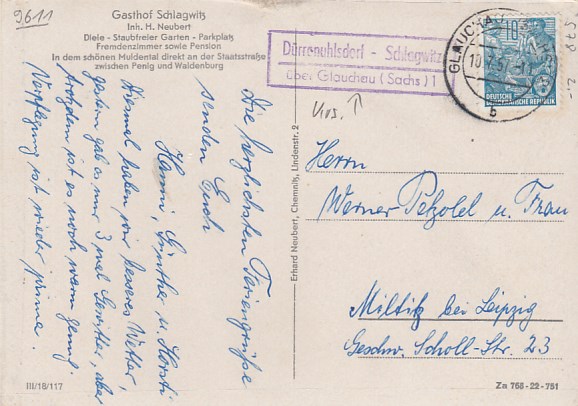 9611
Gasthof Schlagwitz
Inh. H. Neubert
Diele - Staubfreier Garten - Parkplatz
Fremdenzimmer sowie Pension
In dem schönen Muldental direkt an der Staatsstraße
zwischen Penig und Waldenburg
Die herzlichsten Feriengrüße
senden Euch
Hanni, Günther u. Horsti
Diesmal haben wir besseres Wetter,
gestern gab es nur 3 mal Gewitter, aber
trotzdem ist es noch warm genug.
Verpflegung ist wieder prima.
III/18/117
Erhard Neubert, Chemnitz, Lindenstr. 2
Dürrenuhlsdorf - Schlagwitz
über Glauchau (Sachs) 1
GLAUCHAU
10.7.57
b
10
DEUTSCHE
DEMOKRATISCHE REPUBLIK
Herrn
Werner Petzold u. Frau
Miltitz bei Leipzig
Geschw. Scholl-Str. 23
Zn 768-22-751